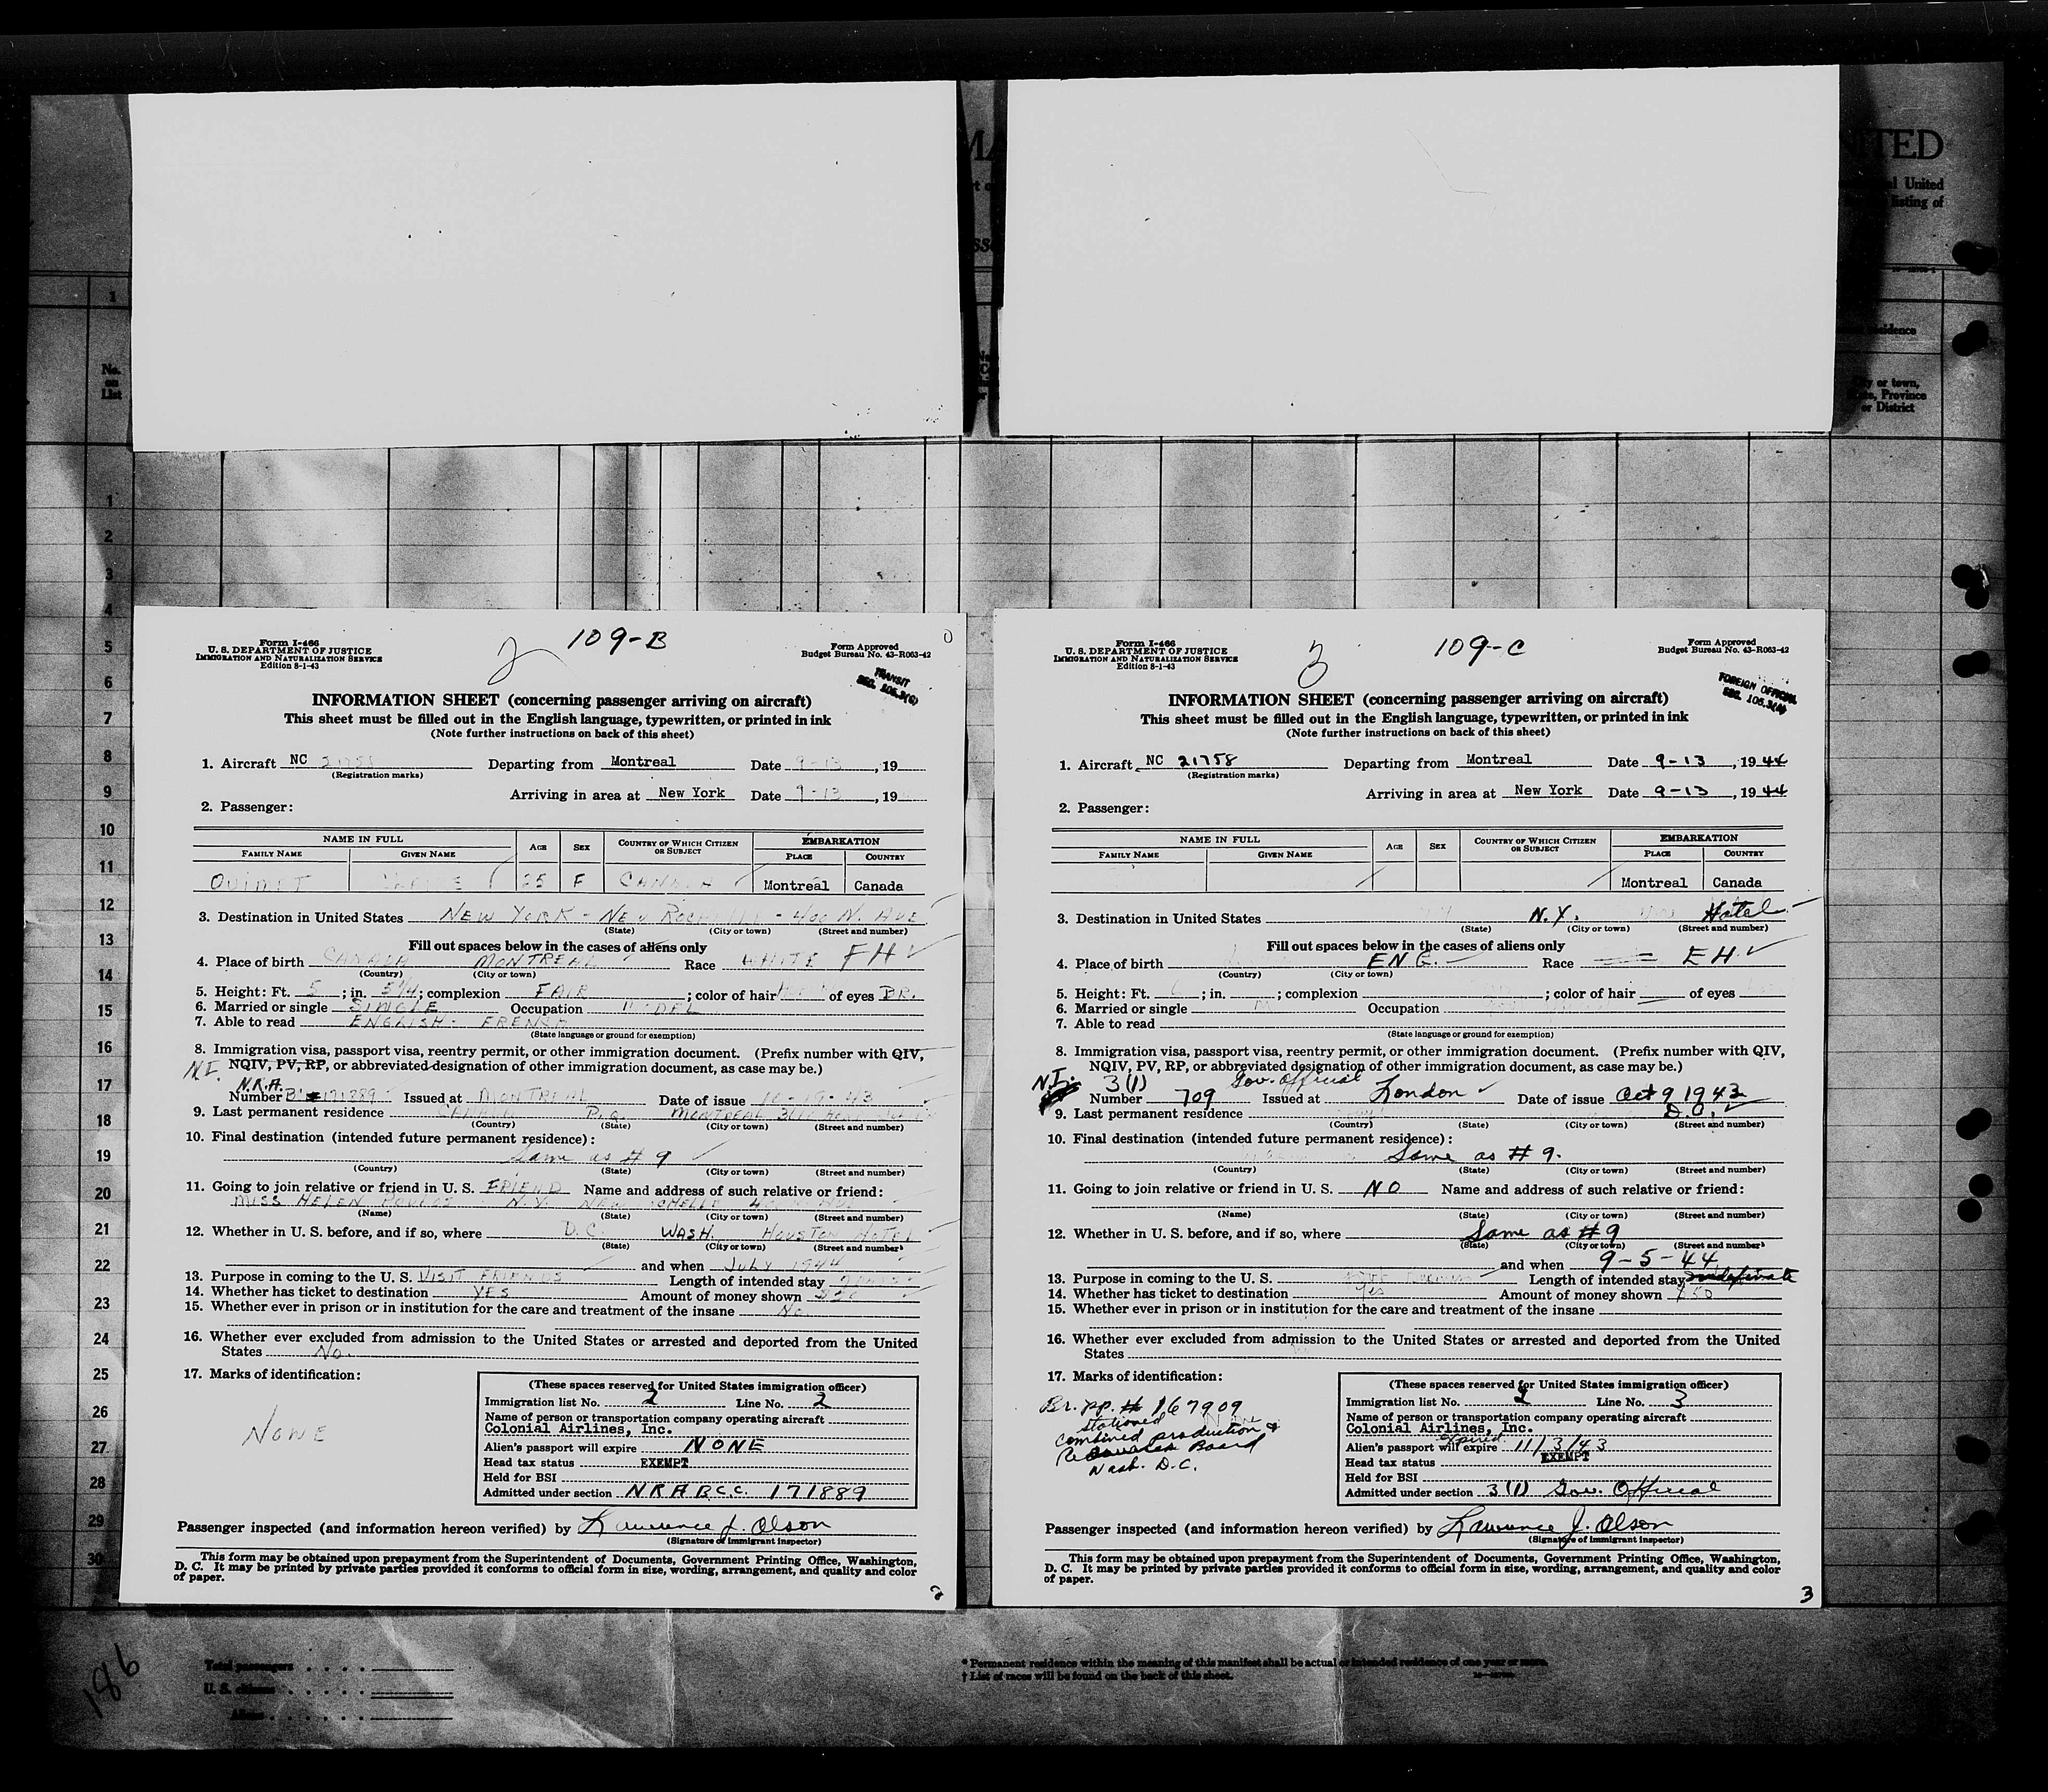 ITED
United
listing of
1
No.
on
List
or town,
Province
or District
1
2
3
4
5
6
7
8
9
10
11
12
13
14
15
16
17
18
19
20
21
22
23
24
25
26
27
28
29
30
Form I-466
U. S. DEPARTMENT OF JUSTICE
IMMIGRATION AND NATURALIZATION SERVICE
Edition 8-1-43
2
109-B
Form Approved
Budget Bureau No. 43-R063-42
TRANSIT
SEC. 105.3(C)
INFORMATION SHEET (concerning passenger arriving on aircraft)
This sheet must be filled out in the English language, typewritten, or printed in ink
(Note further instructions on back of this sheet)
1. Aircraft NC 21758 Departing from Montreal Date 9-13, 19
(Registration marks)
Arriving in area at New York Date 9-13, 19
2. Passenger:
NAME IN FULL AGE SEX COUNTRY OF WHICH CITIZEN OR SUBJECT EMBARKATION
FAMILY NAME GIVEN NAME PLACE COUNTRY
OUIMET 25 F CANADA Montreal Canada
3. Destination in United States NEW YORK - NEW ROCHELLE - 400 N. AVE
(State) (City or town) (Street and number)
Fill out spaces below in the cases of aliens only
4. Place of birth CANADA MONTREAL Race WHITE FH
(Country) (City or town)
5. Height: Ft. 5; in. 5 1/4; complexion FAIR; color of hair of eyes BR.
6. Married or single SINGLE Occupation MODEL
7. Able to read ENGLISH - FRENCH
(State language or ground for exemption)
8. Immigration visa, passport visa, reentry permit, or other immigration document. (Prefix number with QIV,
N.I. NQIV, PV, RP, or abbreviated designation of other immigration document, as case may be.)
N.R.A.
Number B 171889 Issued at MONTREAL Date of issue 10-19-43
9. Last permanent residence CANADA P.Q. MONTREAL
(Country) (State) (City or town) (Street and number)
10. Final destination (intended future permanent residence):
Same as # 9
(Country) (State) (City or town) (Street and number)
11. Going to join relative or friend in U. S. FRIEND Name and address of such relative or friend:
MISS HELEN N.Y. NEW ROCHELLE
(Name) (State) (City or town) (Street and number)
12. Whether in U. S. before, and if so, where D.C. WASH. HOUSTON HOTEL
(State) (City or town) (Street and number)
and when JULY 1944
13. Purpose in coming to the U. S. VISIT FRIENDS Length of intended stay
14. Whether has ticket to destination YES Amount of money shown
15. Whether ever in prison or in institution for the care and treatment of the insane No
16. Whether ever excluded from admission to the United States or arrested and deported from the United
States No.
17. Marks of identification:
NONE
(These spaces reserved for United States immigration officer)
Immigration list No. 2 Line No. 2
Name of person or transportation company operating aircraft
Colonial Airlines, Inc.
Alien's passport will expire NONE
Head tax status EXEMPT
Held for BSI
Admitted under section NRABCC. 171889
Passenger inspected (and information hereon verified) by Lawrence J. Olson
(Signature of immigrant inspector)
This form may be obtained upon prepayment from the Superintendent of Documents, Government Printing Office, Washington,
D. C. It may be printed by private parties provided it conforms to official form in size, wording, arrangement, and quality and color
of paper.
Form I-466
U. S. DEPARTMENT OF JUSTICE
IMMIGRATION AND NATURALIZATION SERVICE
Edition 8-1-43
3
109-C
Form Approved
Budget Bureau No. 43-R063-42
FOREIGN OFFICIAL
SEC. 105.3(A)
INFORMATION SHEET (concerning passenger arriving on aircraft)
This sheet must be filled out in the English language, typewritten, or printed in ink
(Note further instructions on back of this sheet)
1. Aircraft NC 21758 Departing from Montreal Date 9-13, 1944
(Registration marks)
Arriving in area at New York Date 9-13, 1944
2. Passenger:
NAME IN FULL AGE SEX COUNTRY OF WHICH CITIZEN OR SUBJECT EMBARKATION
FAMILY NAME GIVEN NAME PLACE COUNTRY
Montreal Canada
3. Destination in United States N.Y. Hotel
(State) (City or town) (Street and number)
Fill out spaces below in the cases of aliens only
4. Place of birth ENG. Race EH
(Country) (City or town)
5. Height: Ft. ; in. ; complexion ; color of hair of eyes
6. Married or single Occupation
7. Able to read
(State language or ground for exemption)
8. Immigration visa, passport visa, reentry permit, or other immigration document. (Prefix number with QIV,
NQIV, PV, RP, or abbreviated designation of other immigration document, as case may be.)
N.I. 3(1) Gov. Official
Number 709 Issued at London Date of issue Oct 9 1942
9. Last permanent residence D.C.
(Country) (State) (City or town) (Street and number)
10. Final destination (intended future permanent residence):
Same as # 9.
(Country) (State) (City or town) (Street and number)
11. Going to join relative or friend in U. S. NO Name and address of such relative or friend:
(Name) (State) (City or town) (Street and number)
12. Whether in U. S. before, and if so, where Same as #9
(State) (City or town) (Street and number)
and when 9-5-44
13. Purpose in coming to the U. S. Length of intended stay indefinate
14. Whether has ticket to destination Yes Amount of money shown 50
15. Whether ever in prison or in institution for the care and treatment of the insane
16. Whether ever excluded from admission to the United States or arrested and deported from the United
States
17. Marks of identification:
Br. pp. # 167909
stationed None
combined production &
Resources Board
Wash. D.C.
(These spaces reserved for United States immigration officer)
Immigration list No. 2 Line No. 3
Name of person or transportation company operating aircraft
Colonial Airlines, Inc.
Alien's passport will expire expired 11/3/43
Head tax status EXEMPT
Held for BSI
Admitted under section 3(1) Gov. Official
Passenger inspected (and information hereon verified) by Lawrence J. Olson
(Signature of immigrant inspector)
This form may be obtained upon prepayment from the Superintendent of Documents, Government Printing Office, Washington,
D. C. It may be printed by private parties provided it conforms to official form in size, wording, arrangement, and quality and color
of paper.
3
186
Total passengers
U. S. citizens
Aliens
* Permanent residence within the meaning of this manifest shall be actual or intended residence of one year or more.
† List of races will be found on the back of this sheet.